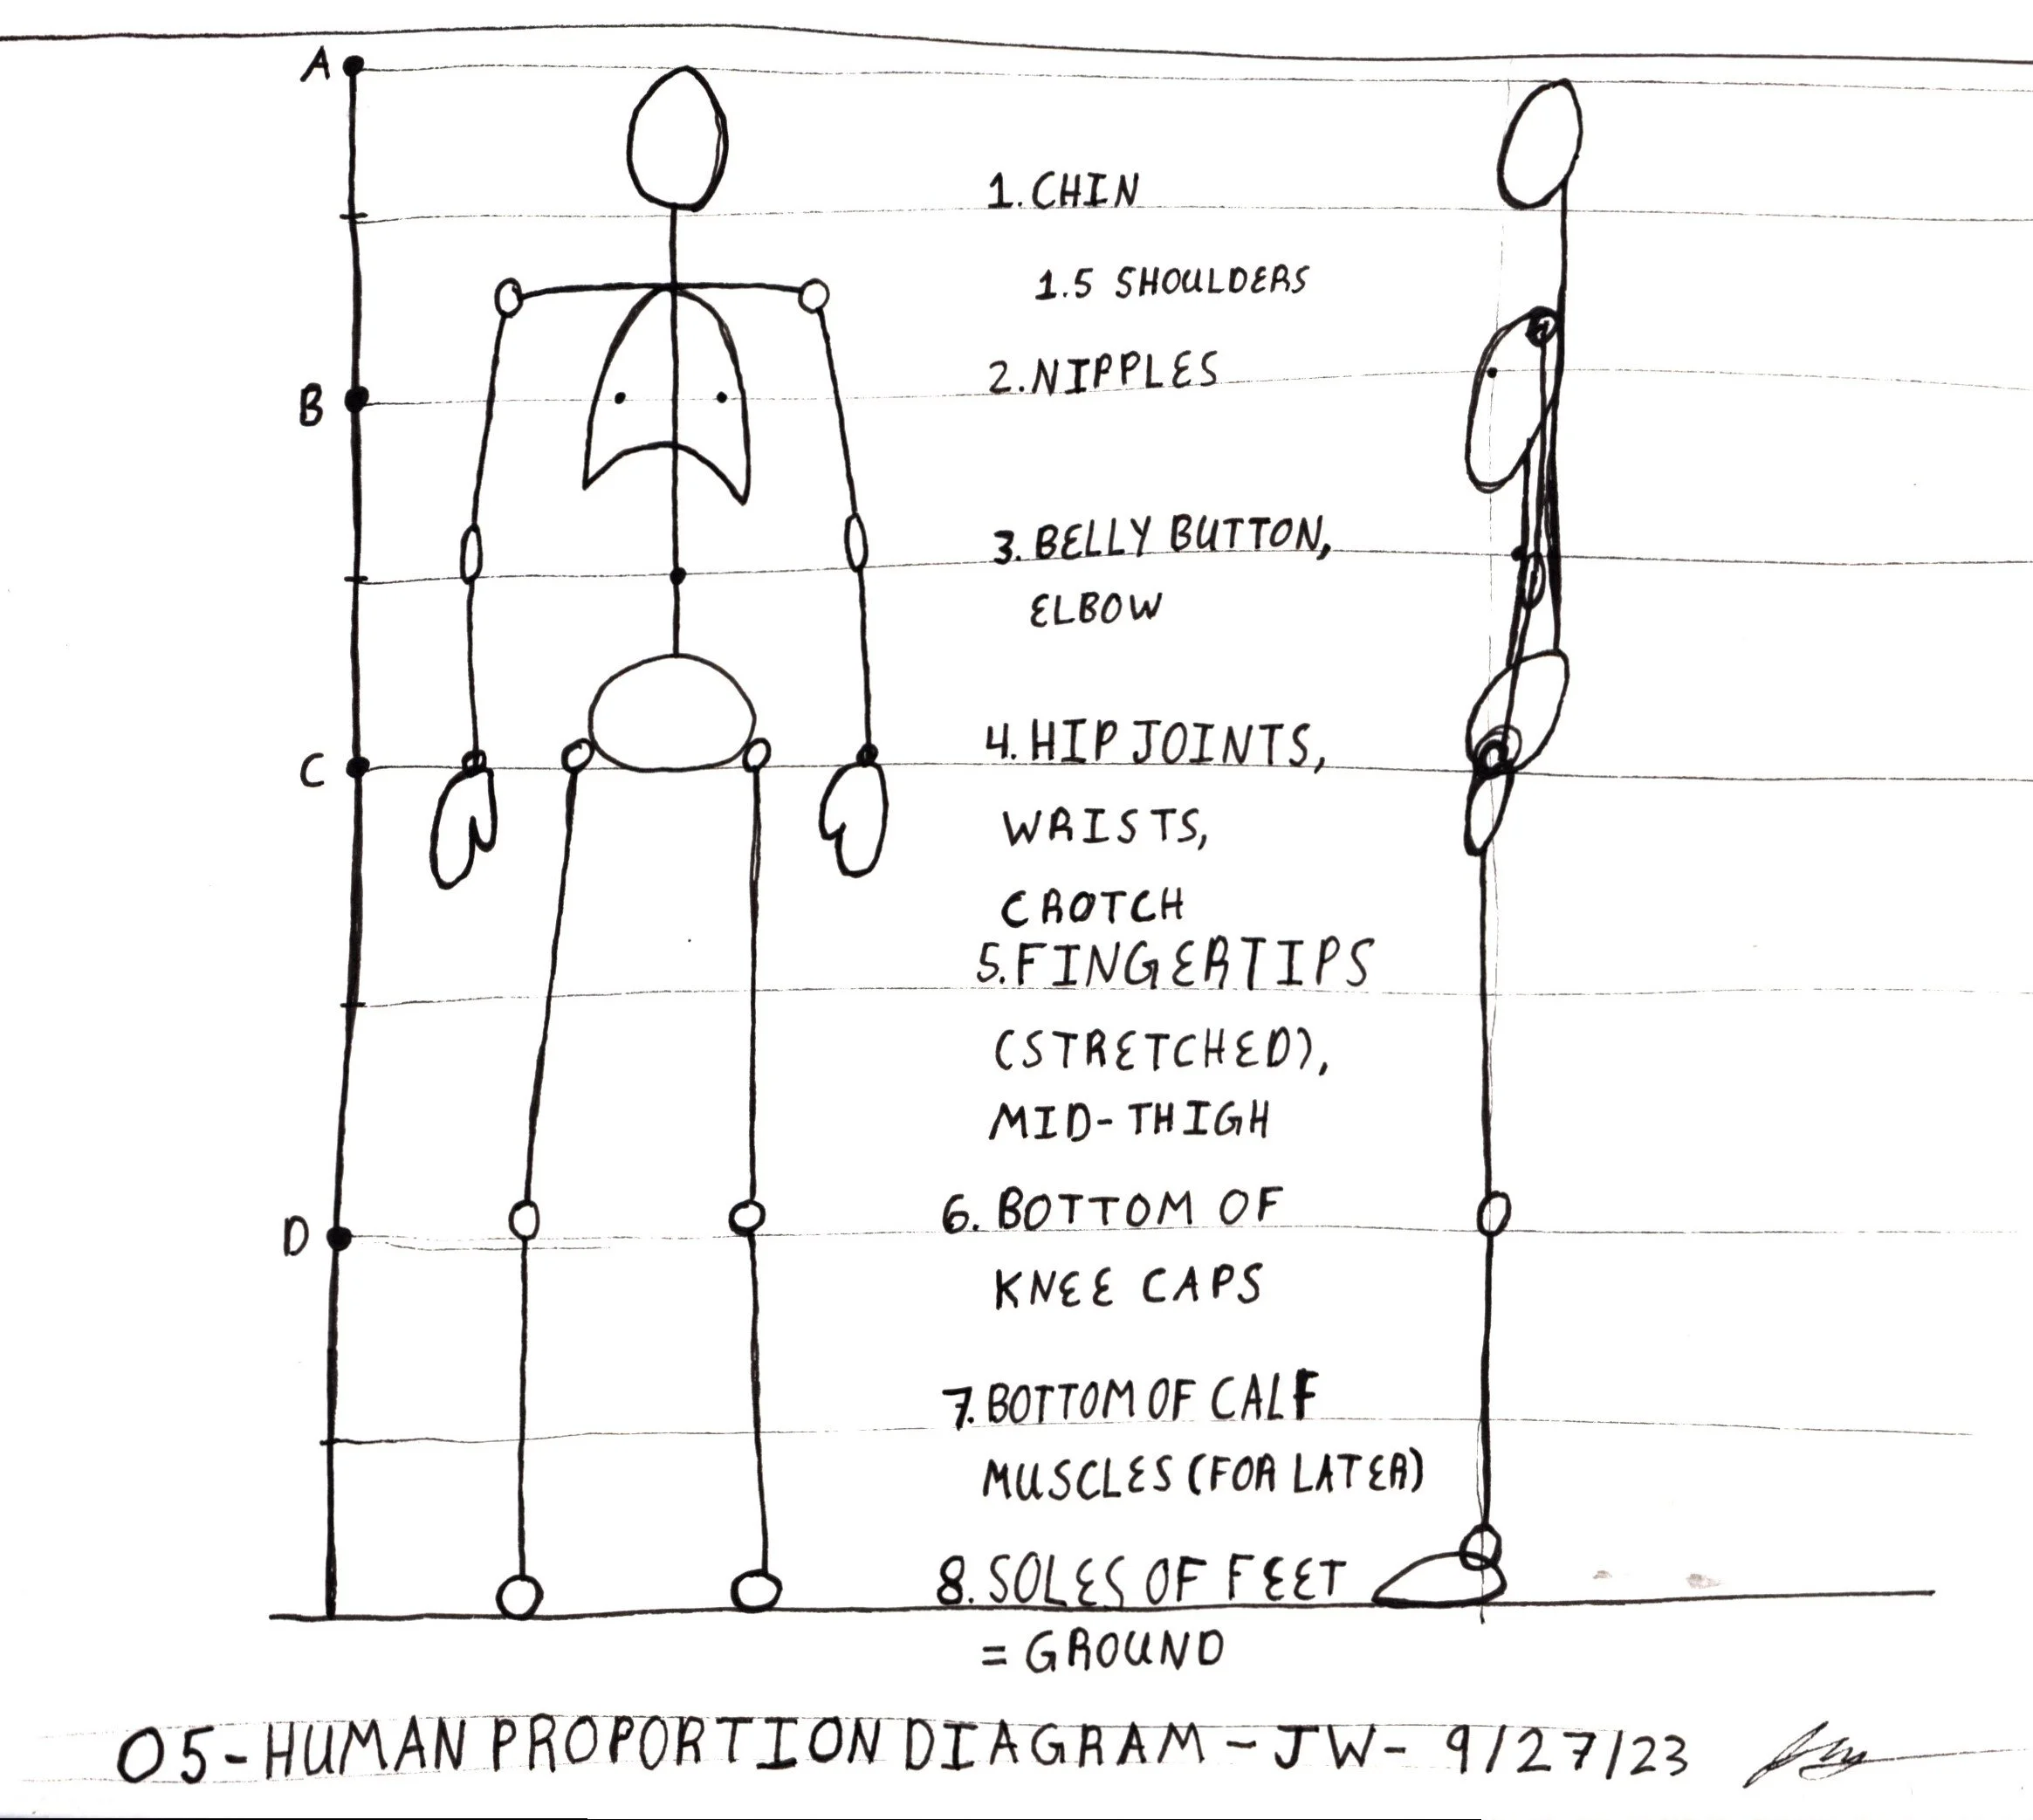 A
1. CHIN
1.5 SHOULDERS
2. NIPPLES
B
3. BELLY BUTTON,
ELBOW
4. HIP JOINTS,
C
WRISTS,
CROTCH
5. FINGERTIPS
(STRETCHED),
MID-THIGH
6. BOTTOM OF
D
KNEE CAPS
7. BOTTOM OF CALF
MUSCLES (FOR LATER)
8. SOLES OF FEET
= GROUND
05-HUMAN PROPORTION DIAGRAM-JW-9/27/23